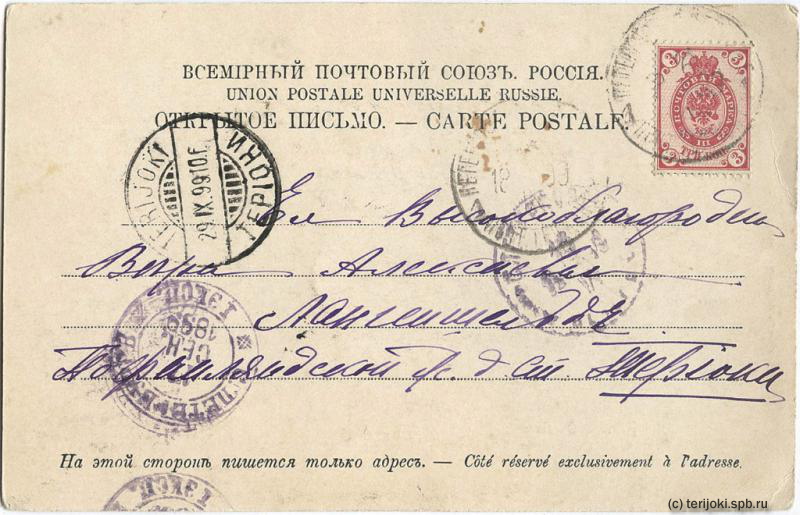 ВСЕМІРНЫЙ ПОЧТОВЫЙ СОЮЗЪ. РОССІЯ.
UNION POSTALE UNIVERSELLE RUSSIE.
ОТКРЫТОЕ ПИСЬМО. — CARTE POSTALE.
3 3
ПОЧТОВАЯ МАРКА
III
ТРИ КОП.
3 3
TERIJOKI
29.IX.99 10.F.
ТЕРІОКИ
Ея Высокоблагородію
Вѣрѣ Алексѣевнѣ
По Финляндской ж. д. ст. Теріоки
СЕН
1899
На этой сторонѣ пишется только адресъ. — Côté réservé exclusivement à l'adresse.
(c) terijoki.spb.ru